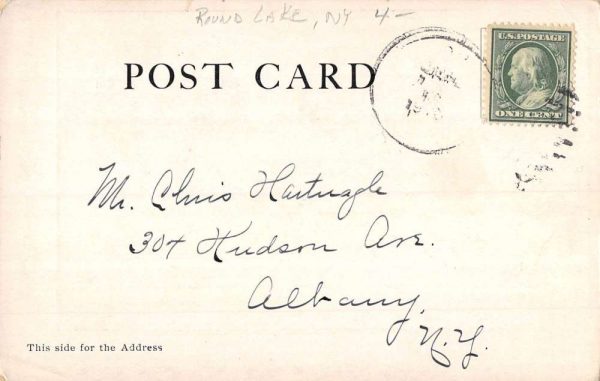 ROUND LAKE, NY 4-
U.S. POSTAGE
POST CARD
ONE CENT
Mr. Chris Hartnagle
304 Hudson Ave.
Albany,
N.Y.
This side for the Address